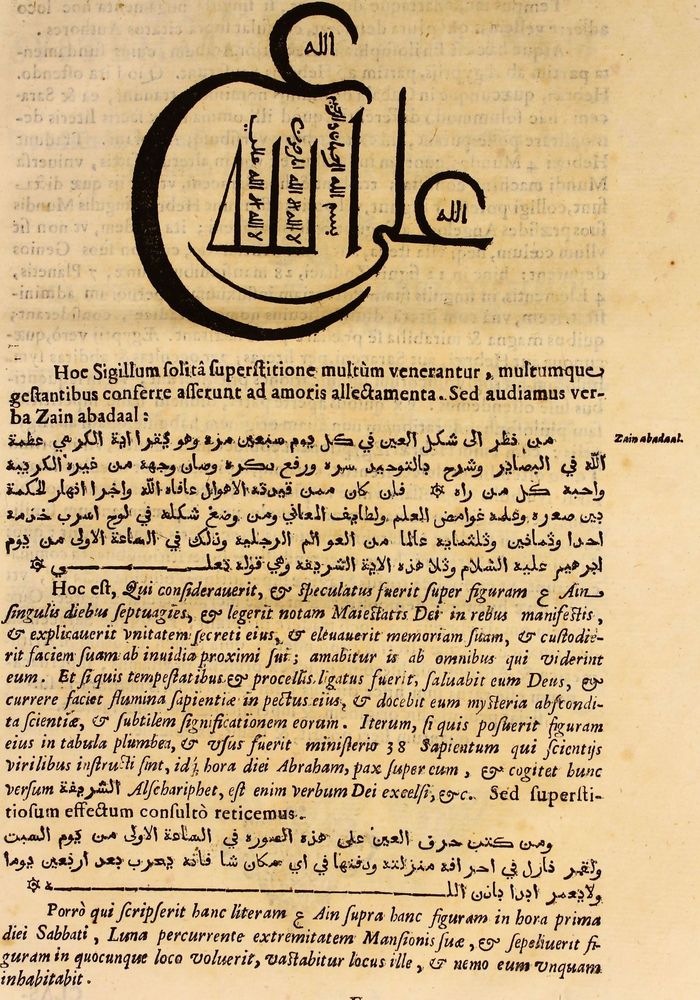 الله
بسم الله الرحمان الرحيم
لا اله الا الله
لا اله الا الله
الله
Hoc Sigillum solitâ superstitione multùm venerantur, multumque
gestantibus conferre asserunt ad amoris allectamenta. Sed audiamus ver-
ba Zain abadaal:
Zain abadaal.
من نظر الى شكل العين في كل يوم سبعين مره وهو يقرا اية الكرمي عظمة
الله في البصاير وشرح بالتوحيد سره ورفع نكره وصان وجهة من غيره الكريبة
واحبه كل من راه ✡ فان كان ممن قيدته الاهوال عافاه الله واجرا انهار الحكمة
بين صدره وعلمه غوامض العلم ولطايف المعاني ومن وضع شكله في لوح اسرب خدمه
احدا وثمانين وثلثمايه عالما من العوالم الرجلية وذلك في الساعة الاولى من يوم
ابرهيم علية السلام وتلا هذه الاية الشريفة وهي قوله تعلــي ✡
Hoc est, Qui consideraverit, & speculatus fuerit super figuram ع Ain
singulis diebus septuagies, & legerit notam Maiestatis Dei in rebus manifestis,
& explicauerit vnitatem secreti eius, & eleuauerit memoriam suam, & custodie-
rit faciem suam ab inuidia proximi sui; amabitur is ab omnibus qui viderint
eum. Et si quis tempestatibus & procellis ligatus fuerit, saluabit eum Deus, &
currere faciet flumina sapientiæ in pectus eius, & docebit eum mysteria abscondi-
ta scientiæ, & subtilem significationem eorum. Iterum, si quis posuerit figuram
eius in tabula plumbea, & vsus fuerit ministerio 38 Sapientum qui scientijs
virilibus instructi sint, idq; hora diei Abraham, pax super eum, & cogitet hunc
versum الشريفة Alschariphet, est enim verbum Dei excelsi, &c. Sed supersti-
tiosum effectum consultò reticemus.
ومن كتب حرف العين على هذه الصوره في الساعة الاولى من يوم السبت
والقمر نازل في احر افة منزلته ودفنها في اي مكان شا فانه يخرب بعد اربعين يوما
ولا يعمر ابدا باذن اللـ ✡
Porrò qui scripserit hanc literam ع Ain supra hanc figuram in hora prima
diei Sabbati, Luna percurrente extremitatem Mansionis suæ, & sepeliuerit fi-
guram in quocunque loco voluerit, vastabitur locus ille, & nemo eum vnquam
inhabitabit.